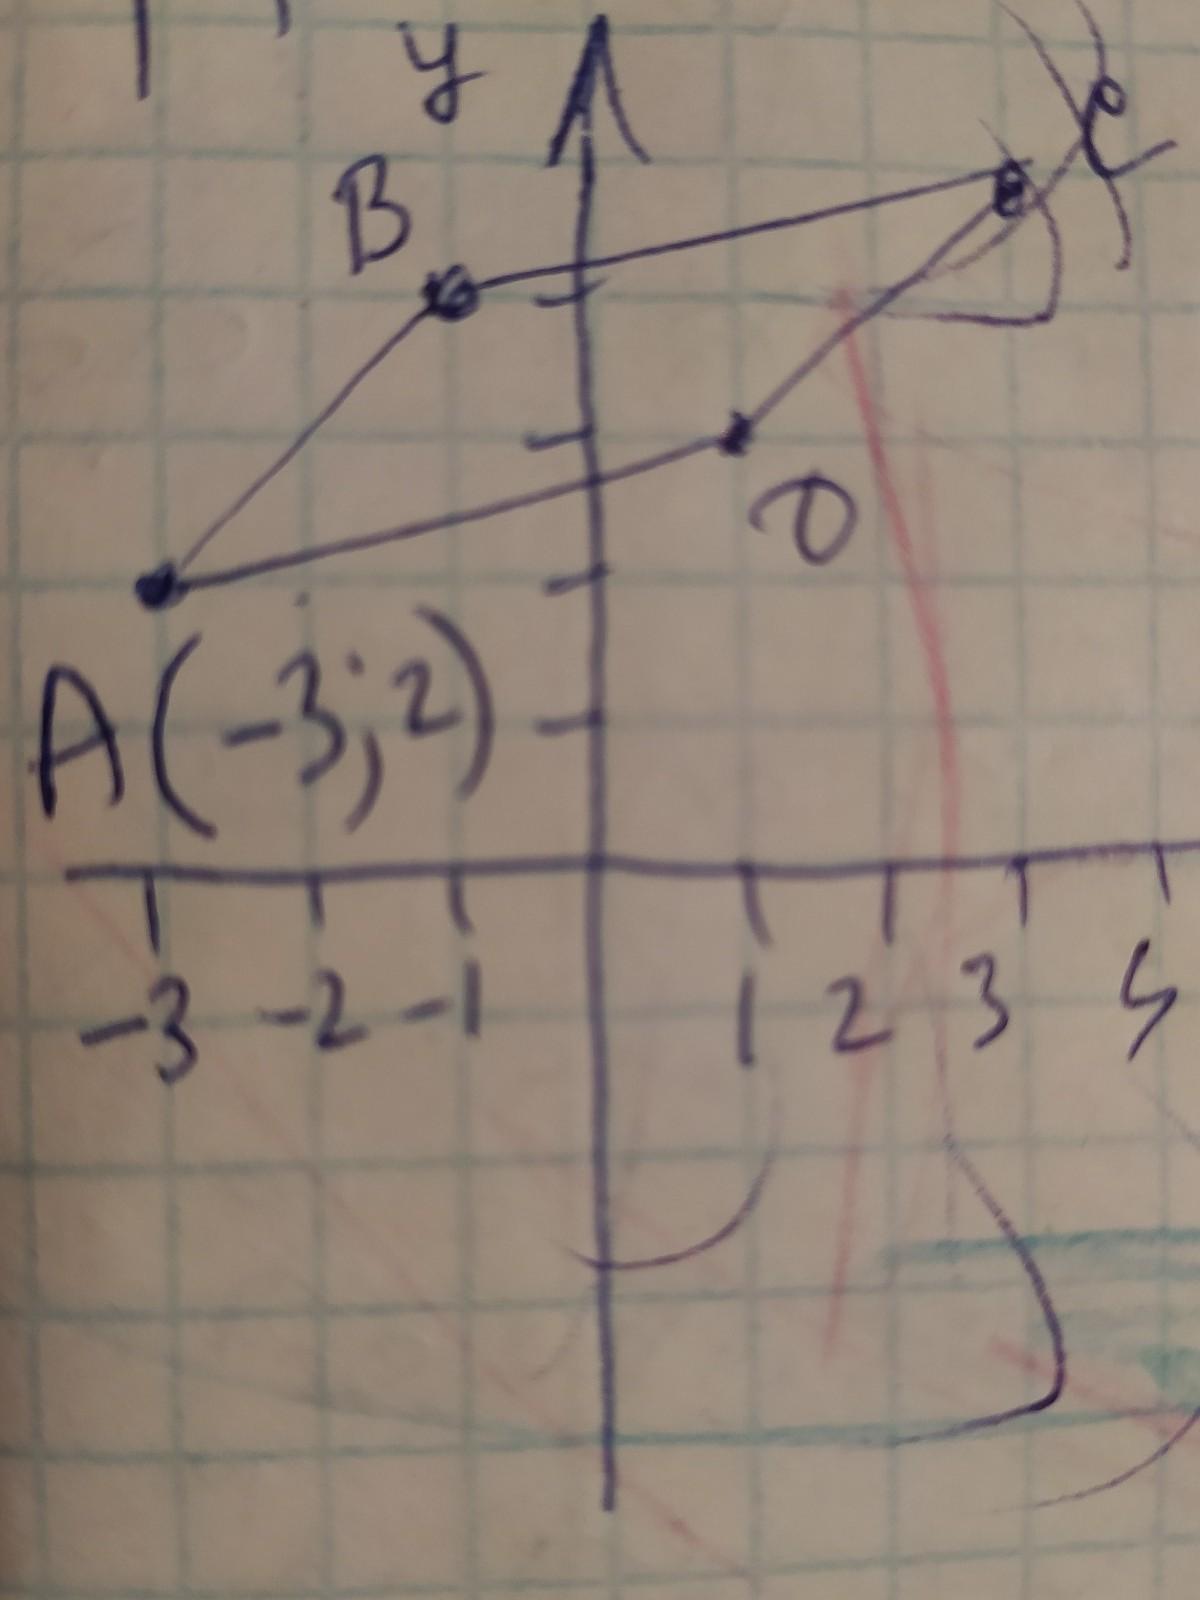 y
B
C
D
A(-3;2)
-3 -2 -1 1 2 3 4